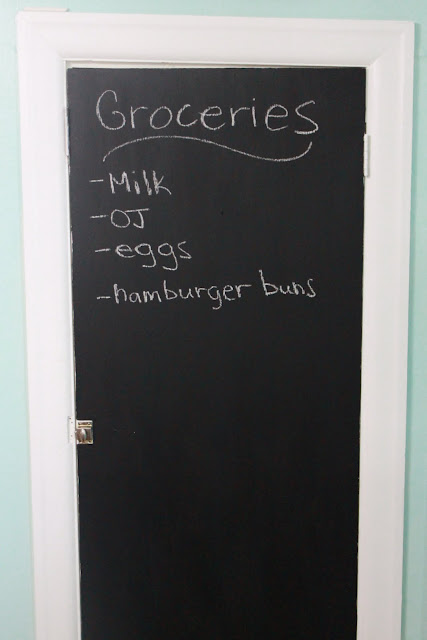 Groceries
-Milk
-OJ
-eggs
-hamburger buns